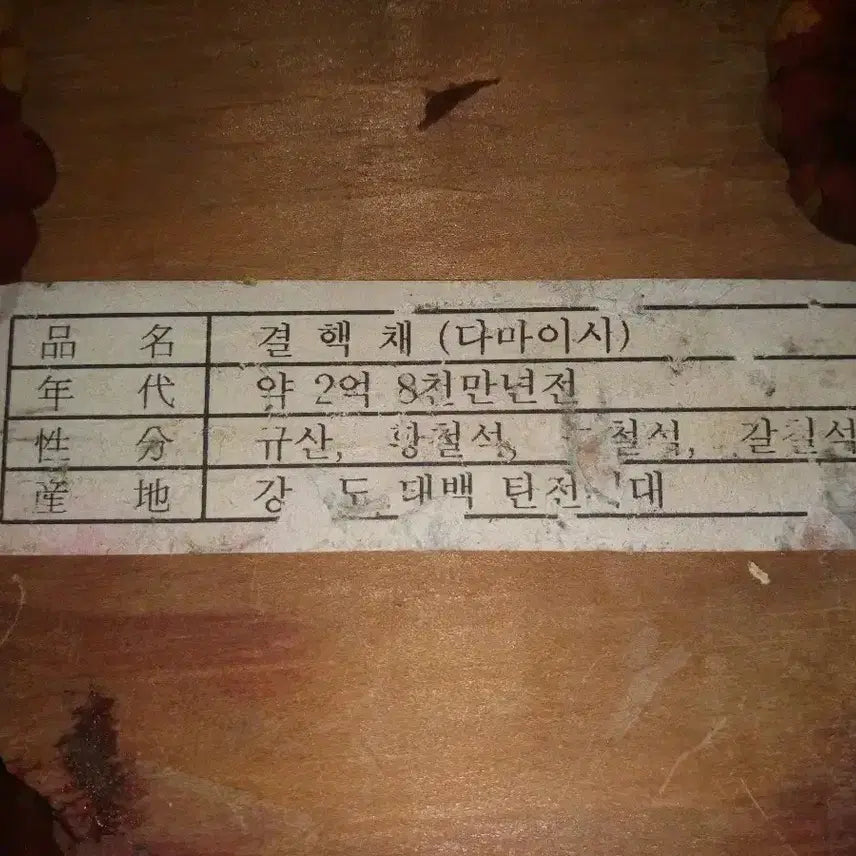 品 名 결 핵 채 (다마이시)
年 代 약 2억 8천만년전
性 分 규산, 황철석, 철석, 갈철석
産 地 강 도 태백 탄전 대